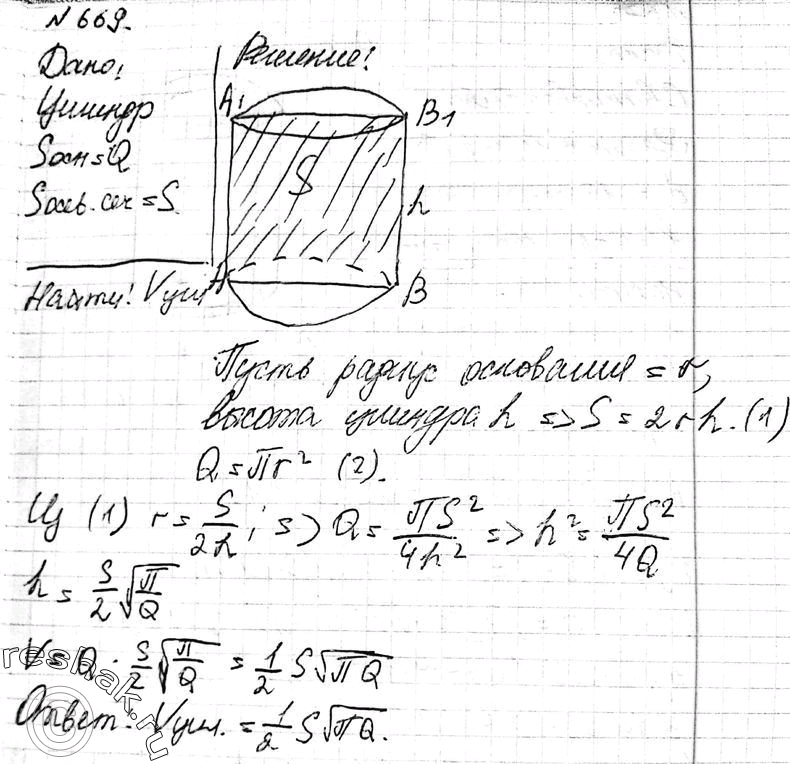 №669.
Дано:
Цилиндр
Sосн=Q
Sосев.сеч=S
Найти: Vцил
Решение:
A1
B1
S
h
A
B
Пусть радиус основания = r,
высота цилиндра h => S = 2rh. (1)
Q=Пr² (2).
Из (1) r=S/2h; => Q= ПS²/4h² => h²= ПS²/4Q
h = S/2 √П/Q
V=Q · S/2 √П/Q = 1/2 S√ПQ
Ответ: Vцил. = 1/2 S√ПQ.
reshak.ru